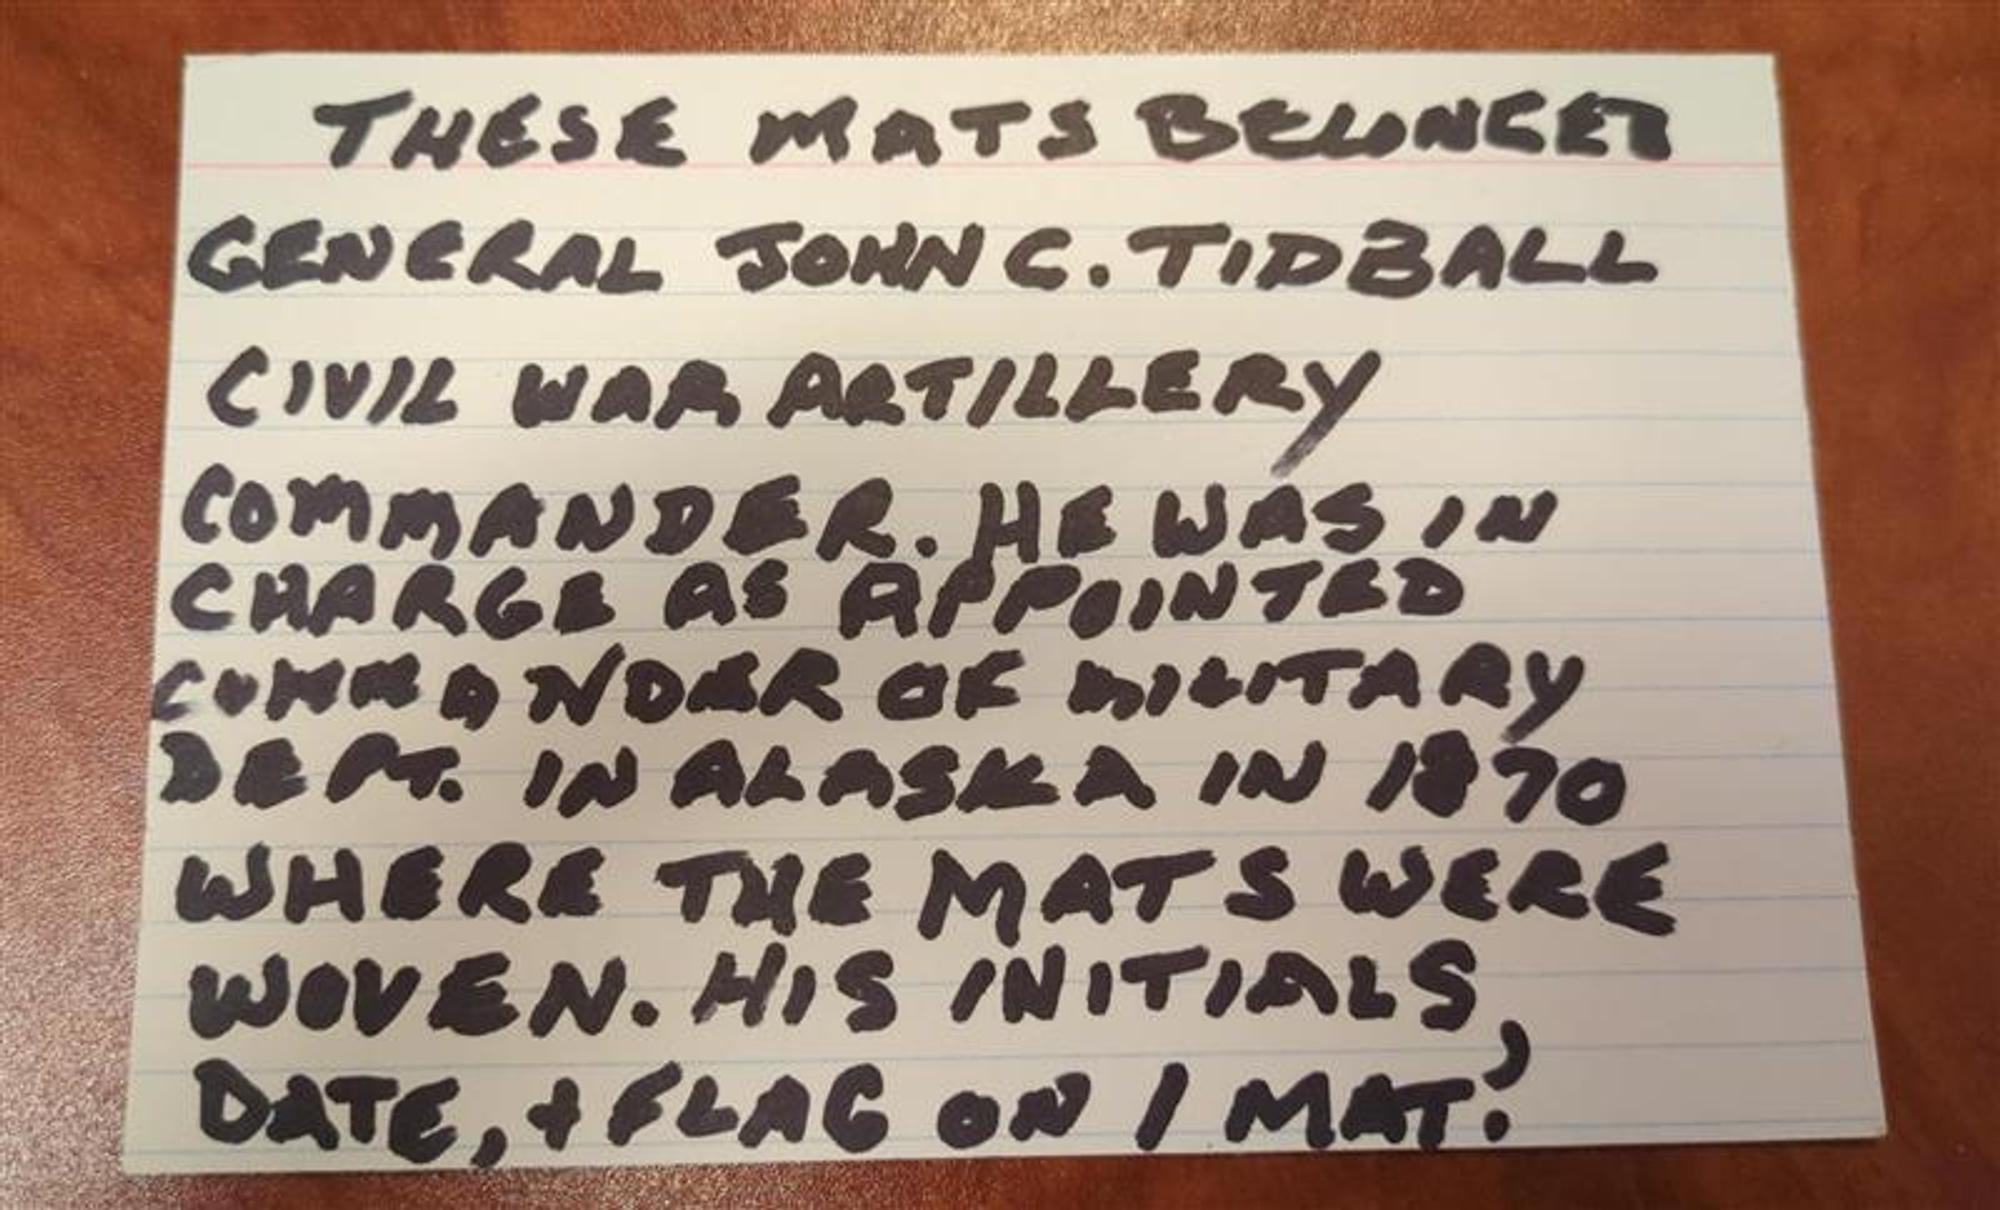 THESE MATS BELONGED
GENERAL JOHN C. TIDBALL
CIVIL WAR ARTILLERY
COMMANDER. HE WAS IN
CHARGE AS APPOINTED
COMMANDER OF MILITARY
DEPT. IN ALASKA IN 1870
WHERE THE MATS WERE
WOVEN. HIS INITIALS,
DATE, + FLAG ON 1 MAT.